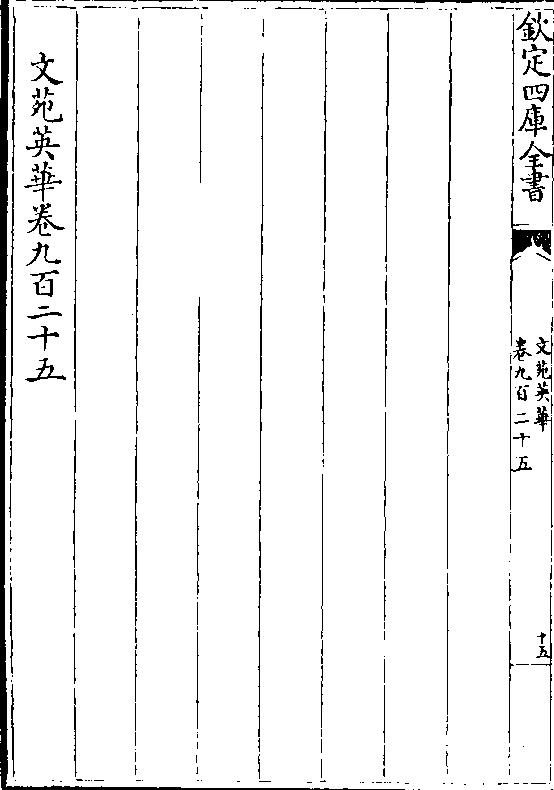 欽定四庫全書
文苑英華
卷九百二十五
十五
文苑英華卷九百二十五